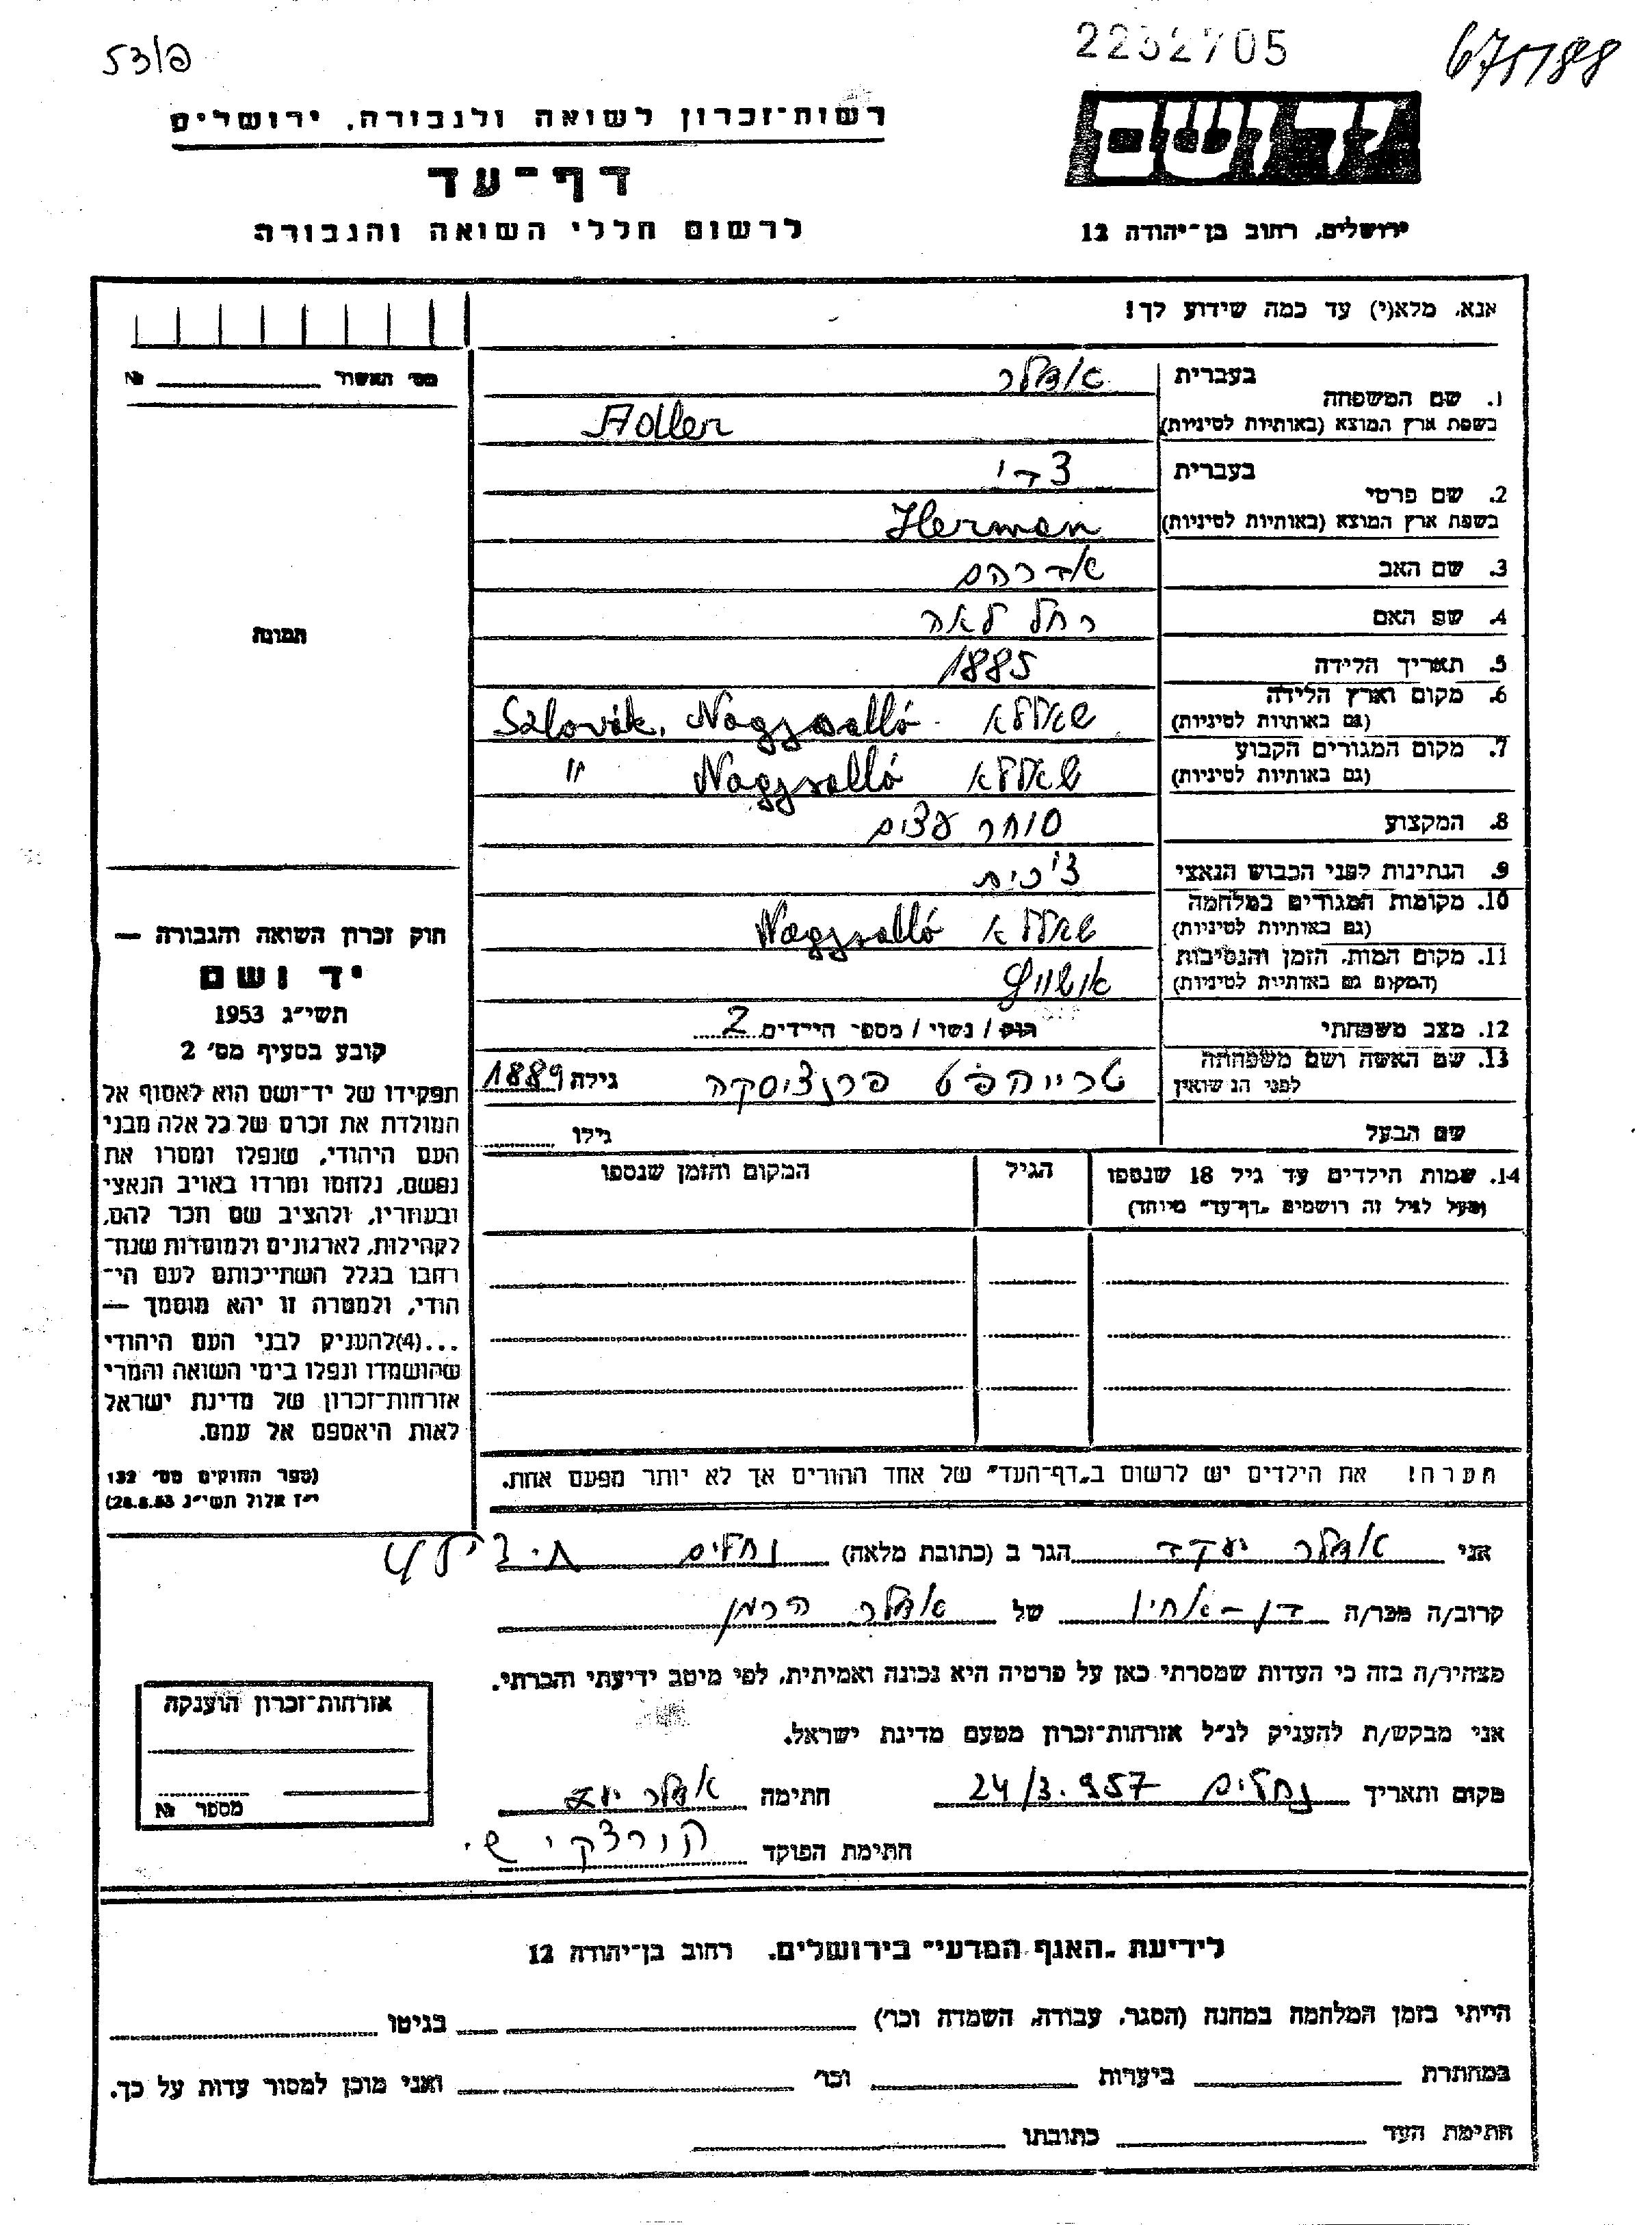 53/פ
2232705
675/88
רשות־זכרון לשואה ולגבורה, ירושלים
יד ושם
דף־עד
לרשום חללי השואה והגבורה
ירושלים, רחוב בן־יהודה 12
אנא, מלא(י) עד כמה שידוע לך!
מס' האשור № 
1. שם המשפחה
בעברית אדלר
בשפת ארץ המוצא (באותיות לטיניות) Adler
2. שם פרטי
בעברית צבי
בשפת ארץ המוצא (באותיות לטיניות) Herman
3. שם האב אברהם
4. שם האם רחל לאה
5. תאריך הלידה 1885
6. מקום וארץ הלידה
(גם באותיות לטיניות) Szlovák, Nagysalló
7. מקום המגורים הקבוע
(גם באותיות לטיניות) Nagysalló "
8. המקצוע סוחר עצים
9. הנתינות לפני הכבוש הנאצי צ'כית
10. מקומות המגורים במלחמה
(גם באותיות לטיניות) Nagysalló
11. מקום המות, הזמן והנסיבות
(המקום גם באותיות לטיניות) אושוויץ
12. מצב משפחתי רווק / נשוי / מספר הילדים 2
13. שם האשה ושם משפחתה
לפני הנשואין פרנציסקה גילה 1889
שם הבעל גילו
14. שמות הילדים עד גיל 18 שנספו הגיל המקום והזמן שנספו
(מעל לגיל זה רושמים „דף־עד" מיוחד)
תמונה
חוק זכרון השואה והגבורה —
יד ושם
תשי״ג 1953
קובע בסעיף מס' 2
תפקידו של יד־ושם הוא לאסוף אל
המולדת את זכרם של כל אלה מבני
העם היהודי, שנפלו ומסרו את
נפשם, נלחמו ומרדו באויב הנאצי
ובעוזריו, ולהציב שם וזכר להם,
לקהילות, לארגונים ולמוסדות שנח־
רבו בגלל השתייכותם לעם הי־
הודי, ולמטרה זו יהא מוסמך —
...(4)להעניק לבני העם היהודי
שהושמדו ונפלו בימי השואה והמרי
אזרחות־זכרון של מדינת ישראל
לאות היאספם אל עמם.
(ספר החוקים מס' 132
י״ז אלול תשי״ג 28.8.53)
הערה! את הילדים יש לרשום ב„דף־העד" של אחד ההורים אך לא יותר מפעם אחת.
אני אדלר יעקב הגר ב (כתובת מלאה) נחלים
קרוב/ה מכר/ה בן-אחיו של אדלר הרמן
מצהיר/ה בזה כי העדות שמסרתי כאן על פרטיה היא נכונה ואמיתית, לפי מיטב ידיעתי והכרתי.
אני מבקש/ת להעניק לנ״ל אזרחות־זכרון מטעם מדינת ישראל.
מקום ותאריך נחלים 24/3.957 חתימה אדלר יעקב
חתימת הפוקד
אזרחות־זכרון הוענקה
מספר №
לידיעת „האגף המדעי" בירושלים, רחוב בן־יהודה 12
הייתי בזמן המלחמה במחנה (הסגר, עבודה, השמדה וכו') בגיטו
במחתרת ביערות וכו' ואני מוכן למסור עדות על כך.
חתימת העד כתובתו